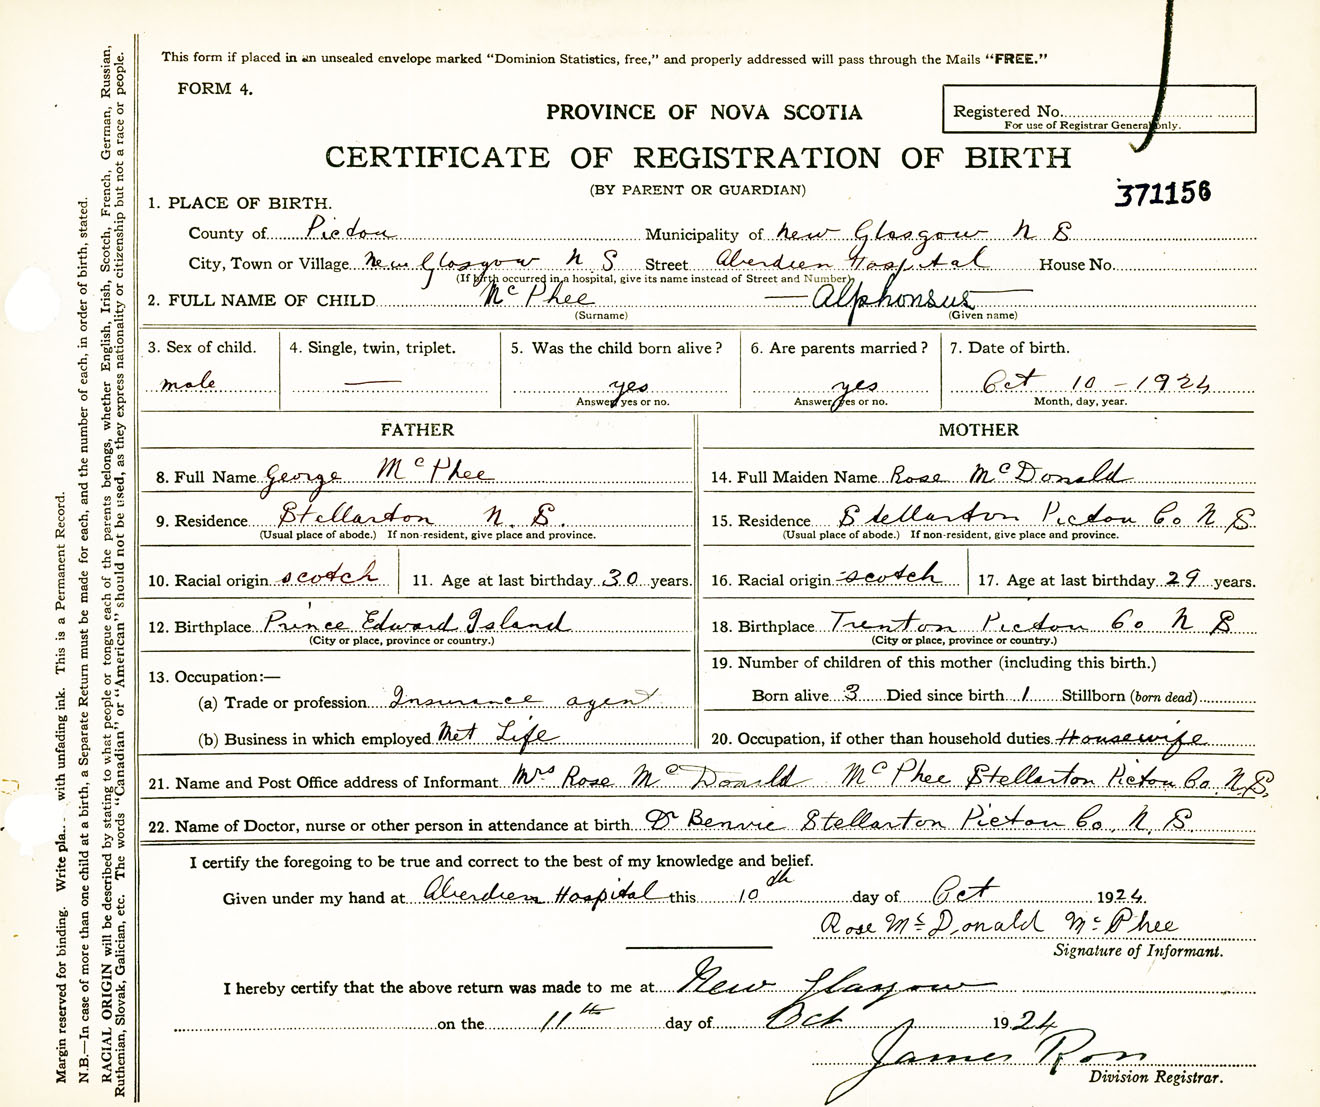 This form if placed in an unsealed envelope marked “Dominion Statistics, free,” and properly addressed will pass through the Mails “FREE.”
FORM 4.
PROVINCE OF NOVA SCOTIA
Registered No.
For use of Registrar General only.
CERTIFICATE OF REGISTRATION OF BIRTH
(BY PARENT OR GUARDIAN)
371156
1. PLACE OF BIRTH.
County of Pictou Municipality of New Glasgow N S
City, Town or Village New Glasgow N S Street Aberdien Hospital House No.
(If birth occurred in a hospital, give its name instead of Street and Number)
2. FULL NAME OF CHILD McPhee — Alphonsus —
(Surname) (Given name)
3. Sex of child. 4. Single, twin, triplet. 5. Was the child born alive? 6. Are parents married? 7. Date of birth.
male — yes yes Oct 10 – 1924
Answer yes or no. Answer yes or no. Month, day, year.
FATHER MOTHER
8. Full Name George McPhee 14. Full Maiden Name Rose McDonald
9. Residence Stellarton N. S. 15. Residence Stellarton Pictou Co N S.
(Usual place of abode.) If non-resident, give place and province. (Usual place of abode.) If non-resident, give place and province.
10. Racial origin scotch 11. Age at last birthday 30 years. 16. Racial origin scotch 17. Age at last birthday 29 years.
12. Birthplace Prince Edward Island 18. Birthplace Trenton Pictou Co N S
(City or place, province or country.) (City or place, province or country.)
13. Occupation:— 19. Number of children of this mother (including this birth.)
(a) Trade or profession Insurance agent Born alive 3 Died since birth 1 Stillborn (born dead)
(b) Business in which employed Met Life 20. Occupation, if other than household duties Housewife
21. Name and Post Office address of Informant Mrs Rose McDonald McPhee Stellarton Pictou Co. N.S.
22. Name of Doctor, nurse or other person in attendance at birth Dr Benvie Stellarton Pictou Co. N. S.
I certify the foregoing to be true and correct to the best of my knowledge and belief.
Given under my hand at Aberdien Hospital this 10th day of Oct 1924
Rose McDonald McPhee
Signature of Informant.
I hereby certify that the above return was made to me at New Glasgow
on the 11th day of Oct 1924
James
Division Registrar.
Margin reserved for binding. Write with unfading ink. This is a Permanent Record.
N.B.—In case of more than one child at a birth, a Separate Return must be made for each, and the number of each, in order of birth, stated.
RACIAL ORIGIN will be described by stating to what people or tongue each of the parents belongs, whether English, Irish, Scotch, French, German, Russian,
Ruthenian, Slovak, Galician, etc. The words “Canadian” or “American” should not be used, as they express nationality or citizenship but not a race or people.